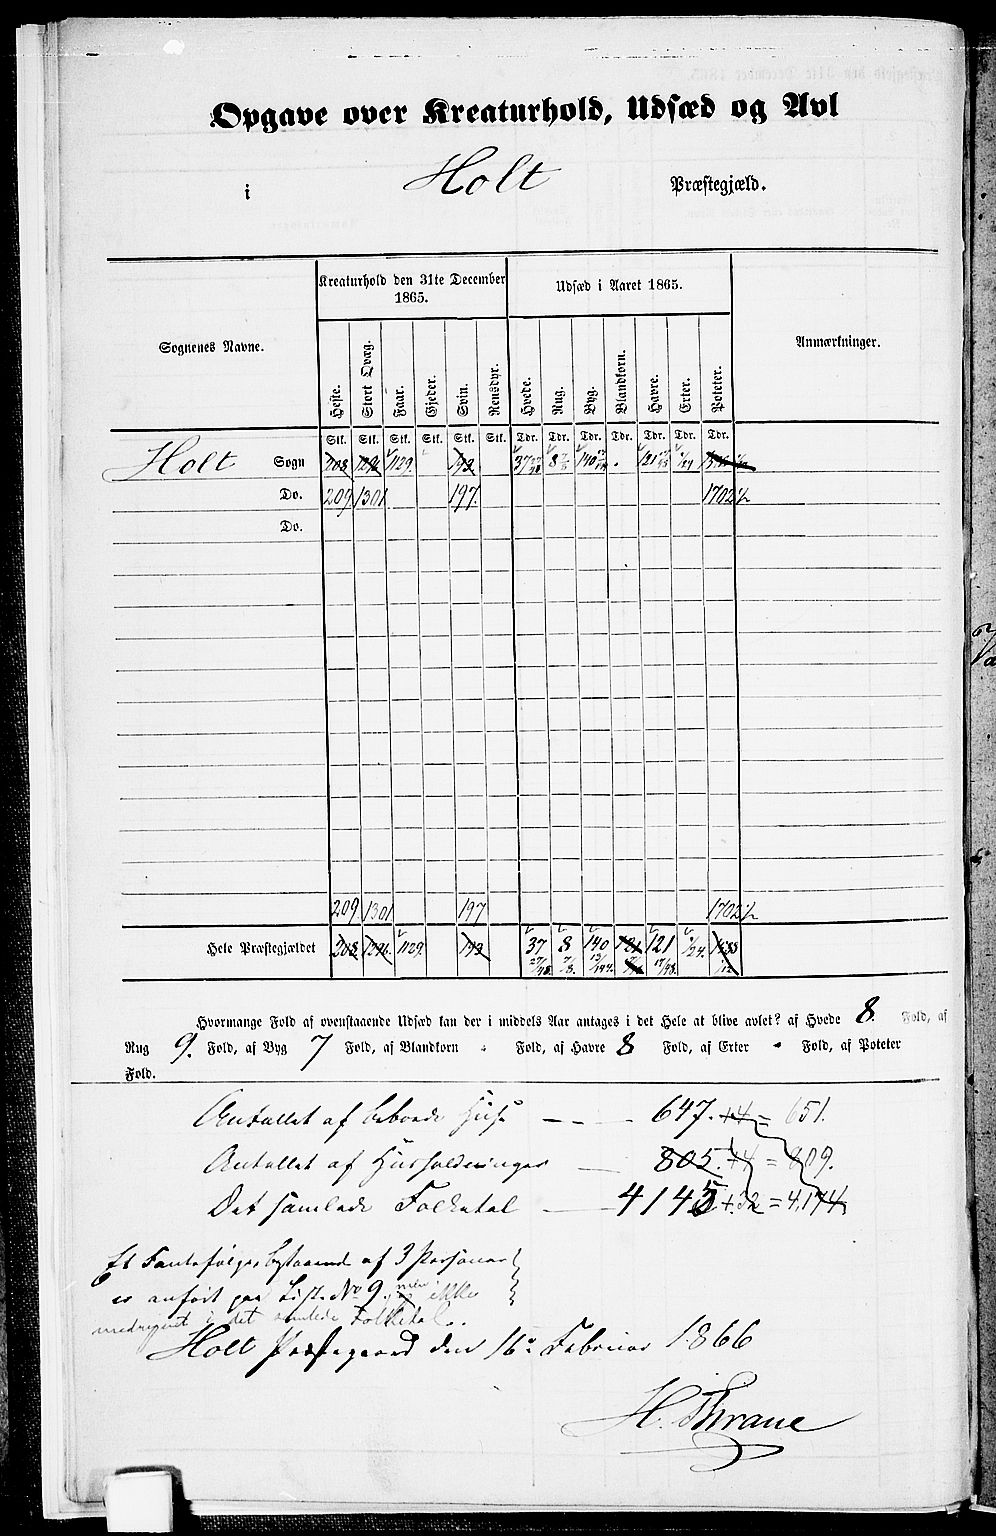 Opgave over Kreaturhold, Udsæd og Avl
i Holt Præstegjæld.
Sognenes Navne.
Kreaturhold den 31te December 1865.
Udsæd i Aaret 1865.
Anmærkninger.
Heste. Stort Qvæg. Faar. Gjeder. Sviin. Rensdyr. Hvede. Rug. Byg. Blandkorn. Havre. Erter. Poteter.
Stk. Stk. Stk. Stk. Stk. Stk. Tdr. Tdr. Tdr. Tdr. Tdr. Tdr. Tdr.
Holt Sogn 208 1296 1129. 193 37 8 140 121
Do. 209 1301 197. 1702
Do.
209 1301 197 1702
Hele Præstegjældet 208 1296. 1129. 193 37 8 140 121 121 1/24.
Hvormange Fold af ovenstaaende Udsæd kan der i middels Aar antages i det Hele at blive avlet? af Hvede 8. Fold, af
Rug 9. Fold, af Byg 7 Fold, af Blandkorn Fold, af Havre 8 Fold, af Erter Fold, af Poteter
Fold.
Antallet af beboede Huse — — — 647. +4 = 651.
Antallet af Husholdninger — 805. +4 = 809.
Det samlede Folketal — 4145 +32 = 4,174
Et Fantefølge bestaaende af 3 Personer
er anført paa Liste No 9., men ikke
medregnet i det samlede Folketal..
Holt Præstegaard den 16de Februar 1866
H. Thrane